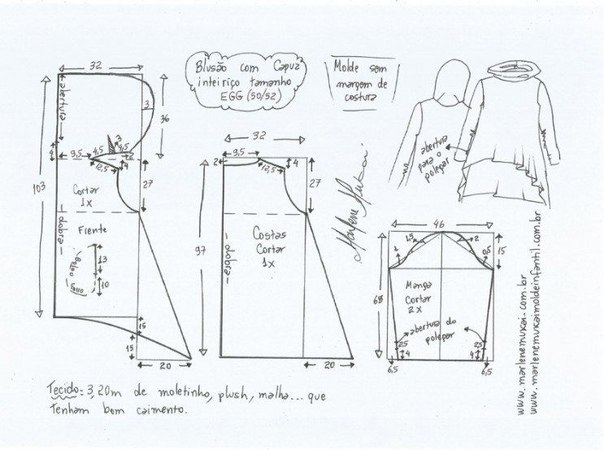 Blusão com Capuz
inteiriço tamanho
EGG (50/52)
Molde sem
margem de
costura
32
abertura
3
36
4
3
4,5
4,5
2
9,5
12,5
4
103
27
Cortar
1x
dobra
Frente
Bolso
Faca
13
10
15
15
20
32
2
9,5
12,5
4
27
97
Costas
Cortar
1x
dobra
20
Marlene Mukai
abertura
para o
polegar
46
1,5
2
1
0,5
15
68
Manga
Cortar
2x
abertura do
polegar
25
4
6,5
25
4
6,5
www.marlenemukai.com.br
www.marlenemukaimoldeinfantil.com.br
Tecido: 3,20m de moletinho, plush, malha... que
Tenham bom caimento.